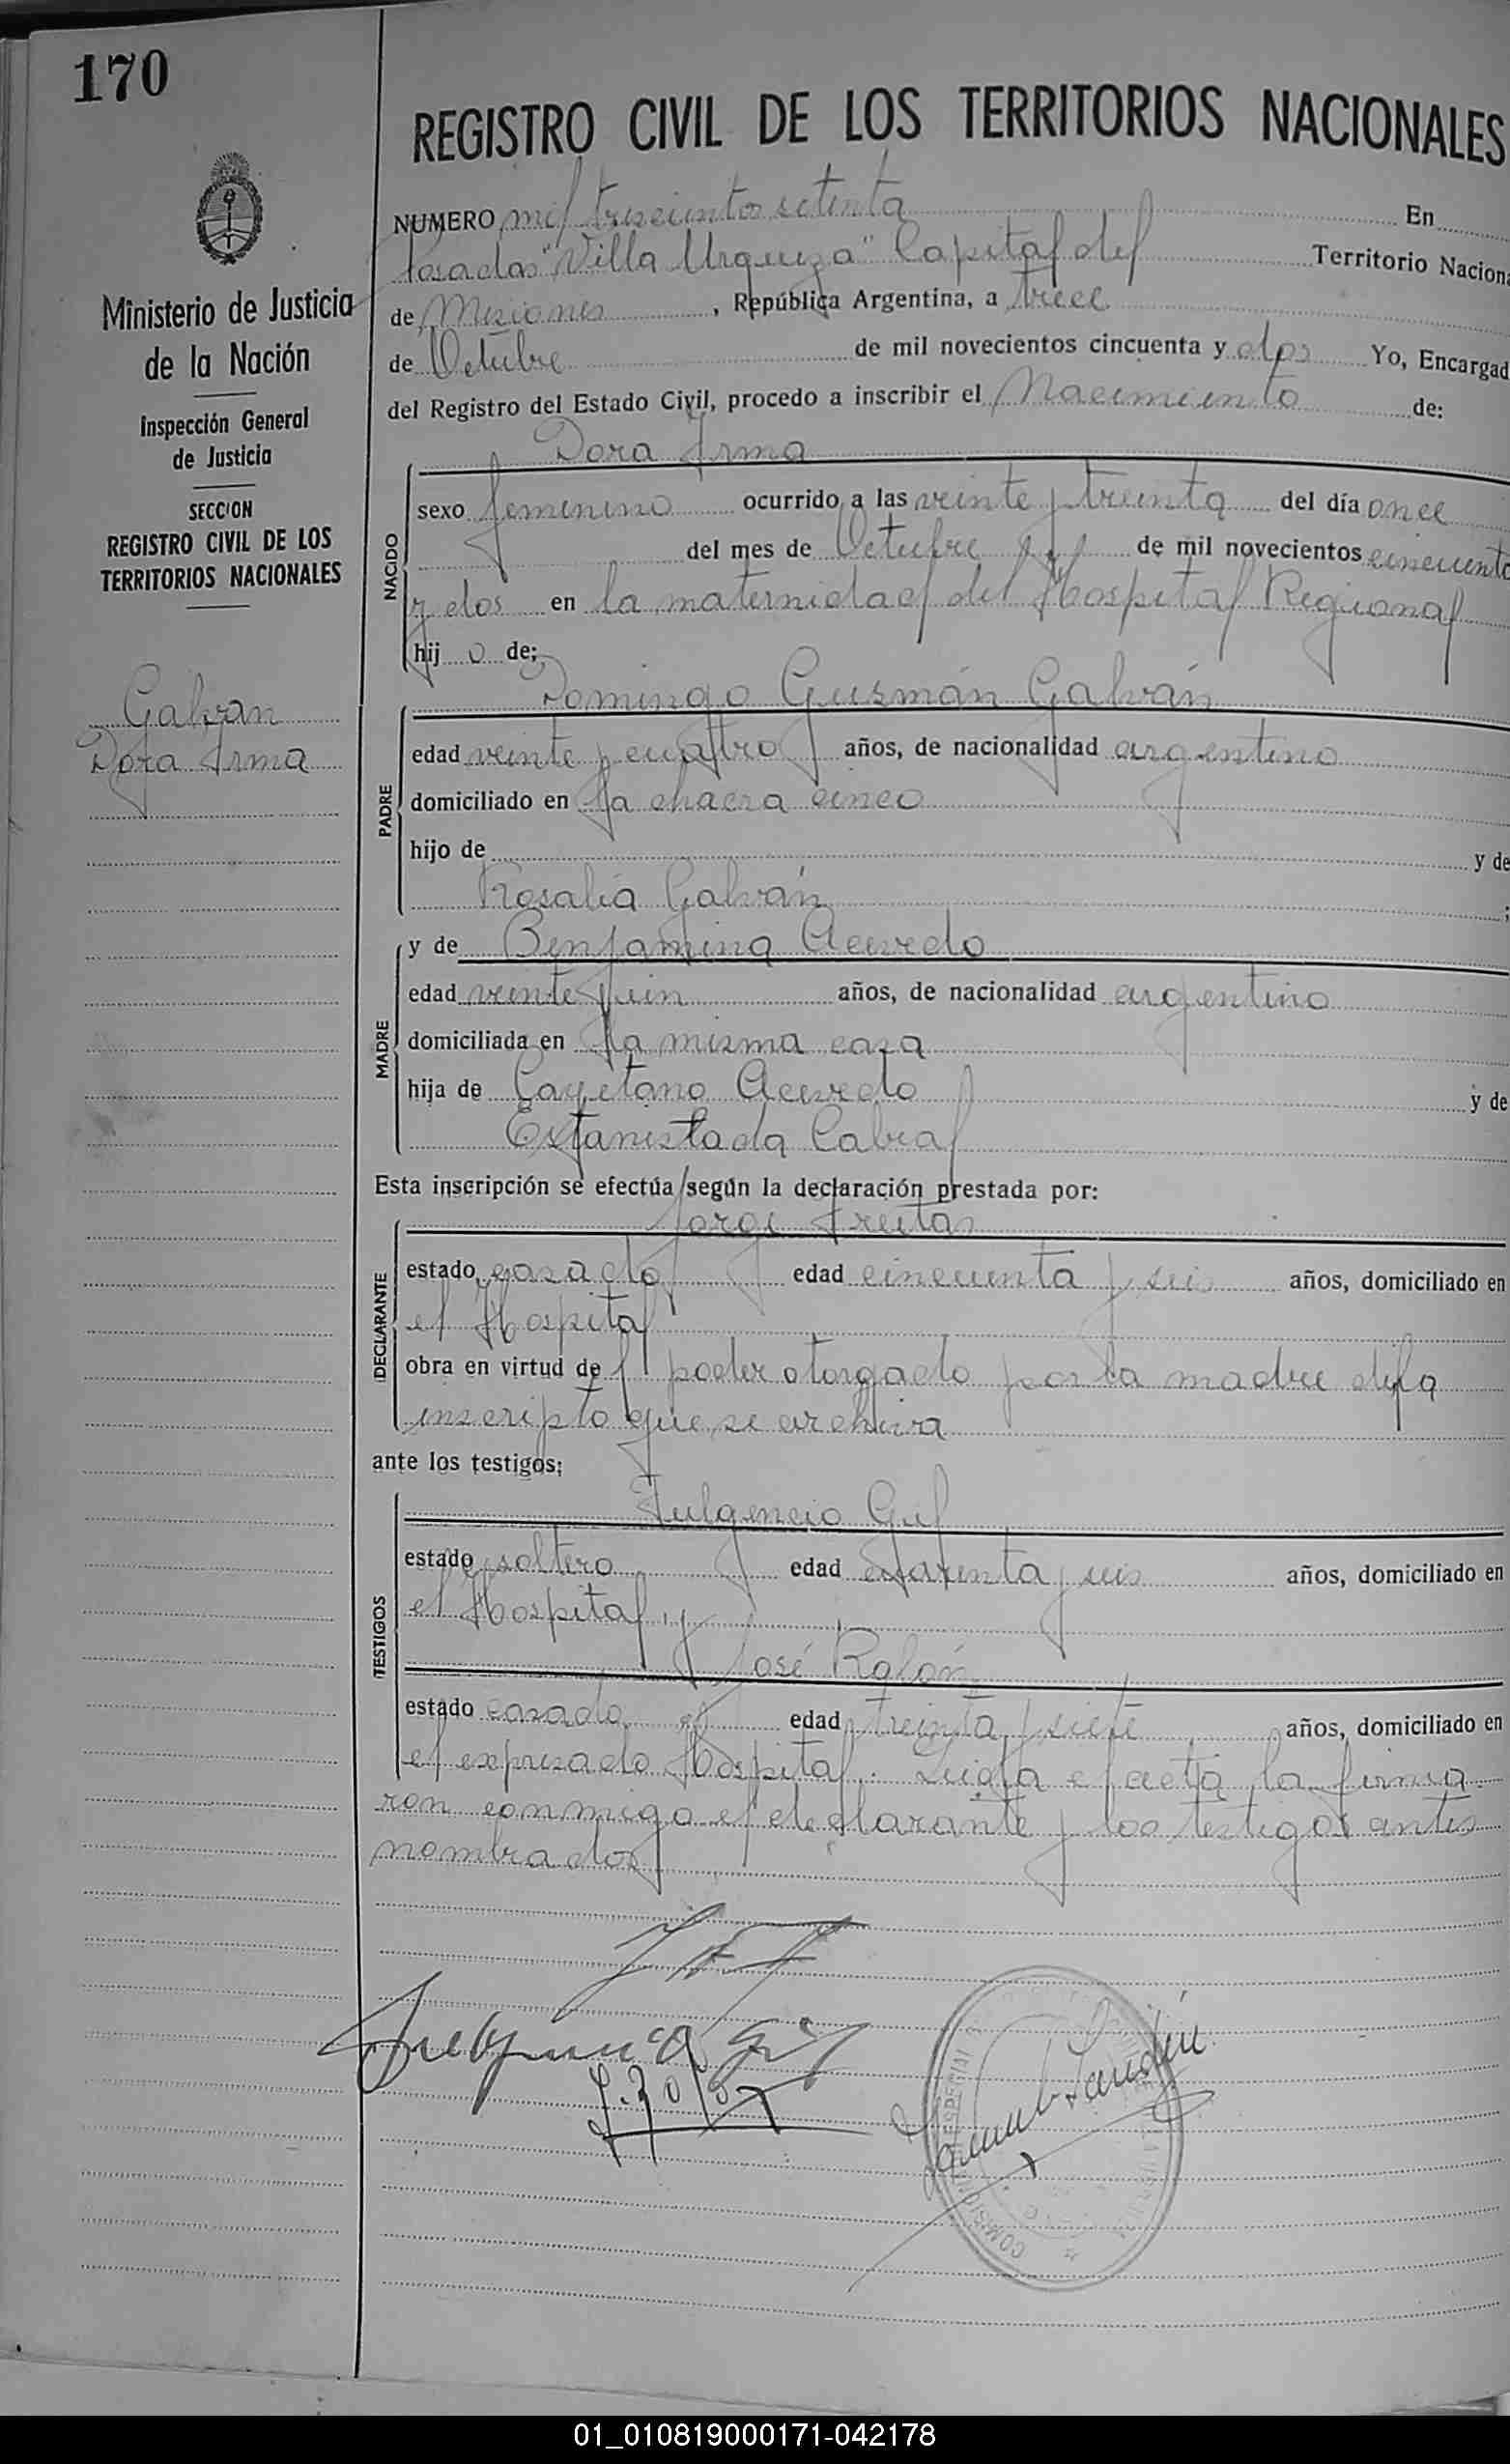 170
REGISTRO CIVIL DE LOS TERRITORIOS NACIONALES
NUMERO mil trescientos setenta En
Posadas "Villa Urquiza" Capital del Territorio Naciona
de Misiones, República Argentina, a trece
de Octubre de mil novecientos cincuenta y dos Yo, Encargad
del Registro del Estado Civil, procedo a inscribir el Nacimiento de:
Dora Irma
NACIDO
sexo femenino ocurrido a las veinte y treinta del día once
del mes de Octubre de mil novecientos cincuenta
y dos en la maternidad del Hospital Regional
hij o de:
Domingo Guzmán Galván
PADRE
edad veinte y cuatro años, de nacionalidad argentino
domiciliado en la chacra cinco
hijo de y de
Rosalia Galván ;
y de Benjamina Acevedo
MADRE
edad veinte y un años, de nacionalidad argentino
domiciliada en la misma casa
hija de Cayetano Acevedo y de
Estanislada Cabral
Esta inscripción se efectúa según la declaración prestada por:
Jorge Freitas
DECLARANTE
estado casado edad cincuenta y seis años, domiciliado en
el Hospital
obra en virtud del poder otorgado por la madre del
inscripto que se archiva
ante los testigos:
Fulgencio Gil
TESTIGOS
estado soltero edad cuarenta y seis años, domiciliado en
el Hospital y
José Rolón
estado casado edad treinta y siete años, domiciliado en
el expresado Hospital. Leida el acta la firma-
ron conmigo el declarante y los testigos antes
nombrados
Ministerio de Justicia
de la Nación
Inspección General
de Justicia
SECCION
REGISTRO CIVIL DE LOS
TERRITORIOS NACIONALES
Galvan
Dora Irma
Fulgencio Gil
J. Rolón
01_010819000171-042178